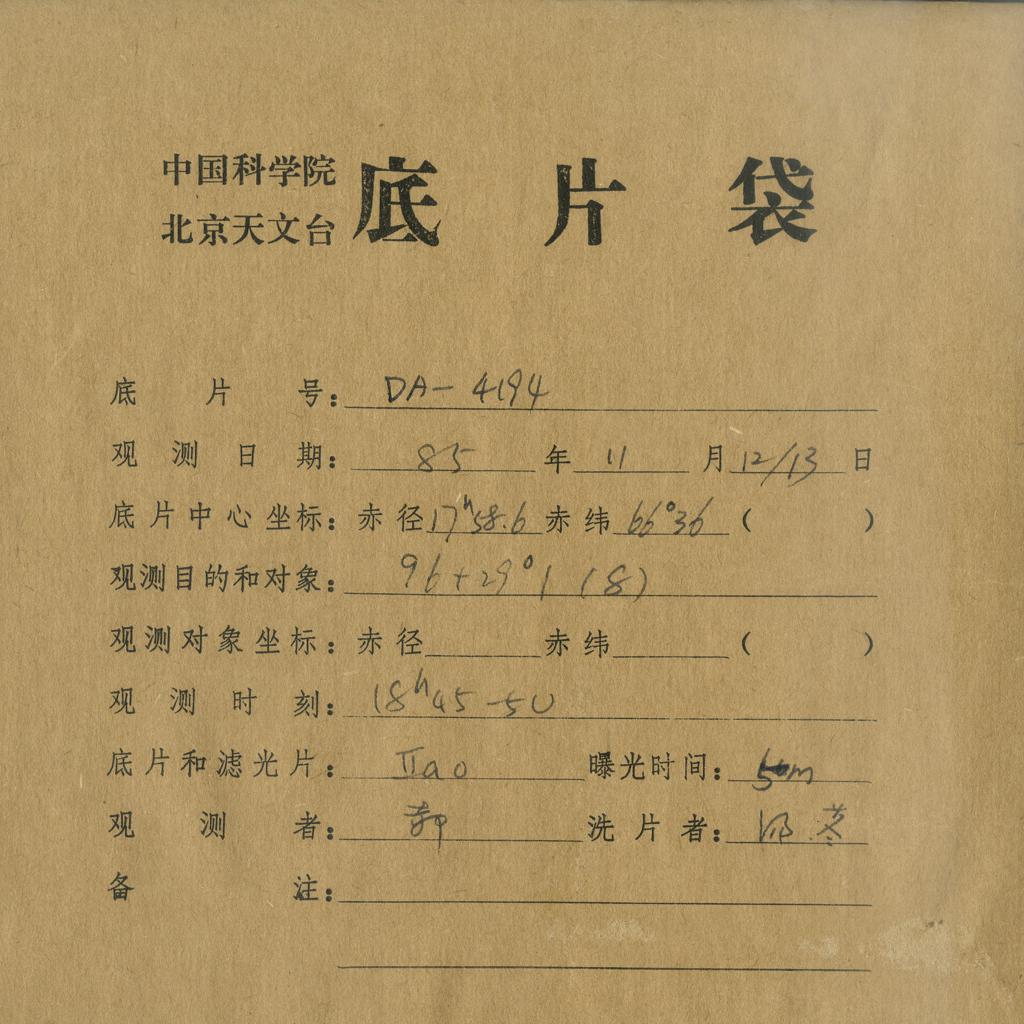 中国科学院
北京天文台
底片袋
底片号: DA-4194
观测日期: 85年11月12/13日
底片中心坐标: 赤径17ʰ58.6赤纬66°36( )
观测目的和对象: 96+29°1 (8)
观测对象坐标: 赤径 赤纬 ( )
观测时刻: 18ʰ45-50
底片和滤光片: IIaO 曝光时间: 5m
观测者: 洗片者:
备注: